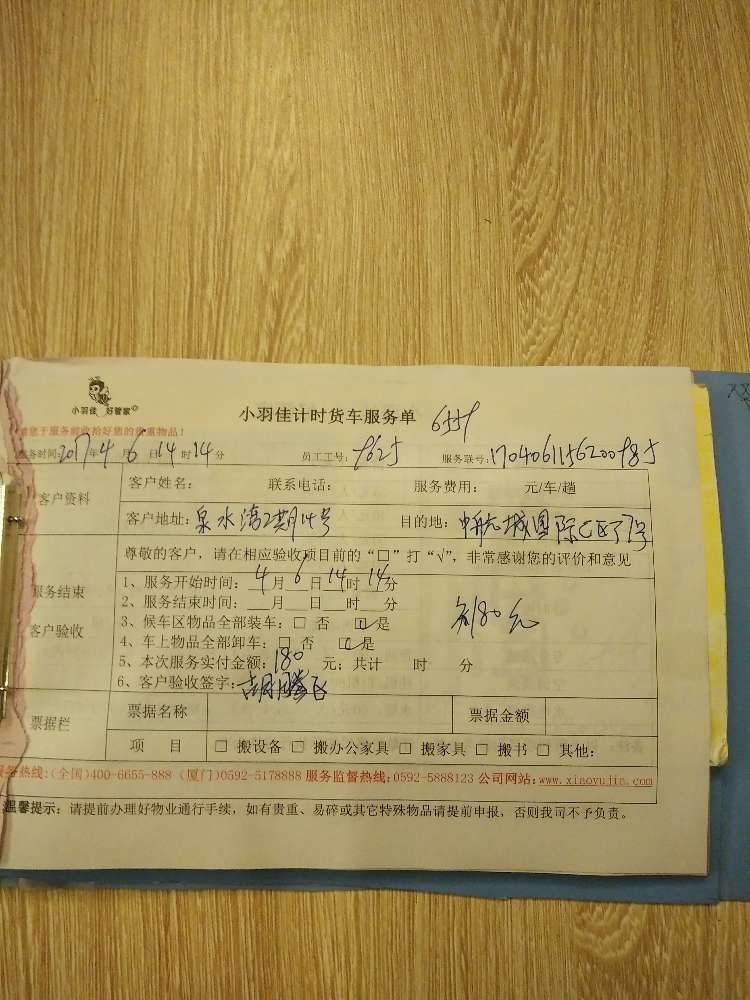 小羽佳 好管家
小羽佳计时货车服务单 6559
请您于服务前收拾好您的贵重物品！
服务时间：2017年4月6日14时14分 员工工号：9625 服务联号：1704061156200985
客户资料
客户姓名： 联系电话： 服务费用： 元/车/趟
客户地址：泉水湾2期14号 目的地：城国际C区77号
尊敬的客户，请在相应验收项目前的“□”打“√”，非常感谢您的评价和意见
服务结束
客户验收
1、服务开始时间：4月6日14时14分
2、服务结束时间：__月__日__时__分
3、候车区物品全部装车：□ 否 ☑是
4、车上物品全部卸车：□ 否 ☑是
180元
5、本次服务实付金额：180 元；共计 时 分
6、客户验收签字：胡腾飞
票据栏
票据名称 票据金额
项 目 □ 搬设备 □ 搬办公家具 □ 搬家具 □ 搬书 □ 其他：
服务热线：(全国)400-6655-888 (厦门)0592-5178888 服务监督热线：0592-5888123 公司网站：www.xiaoyujia.com
温馨提示：请提前办理好物业通行手续，如有贵重、易碎或其它特殊物品请提前申报，否则我司不予负责。